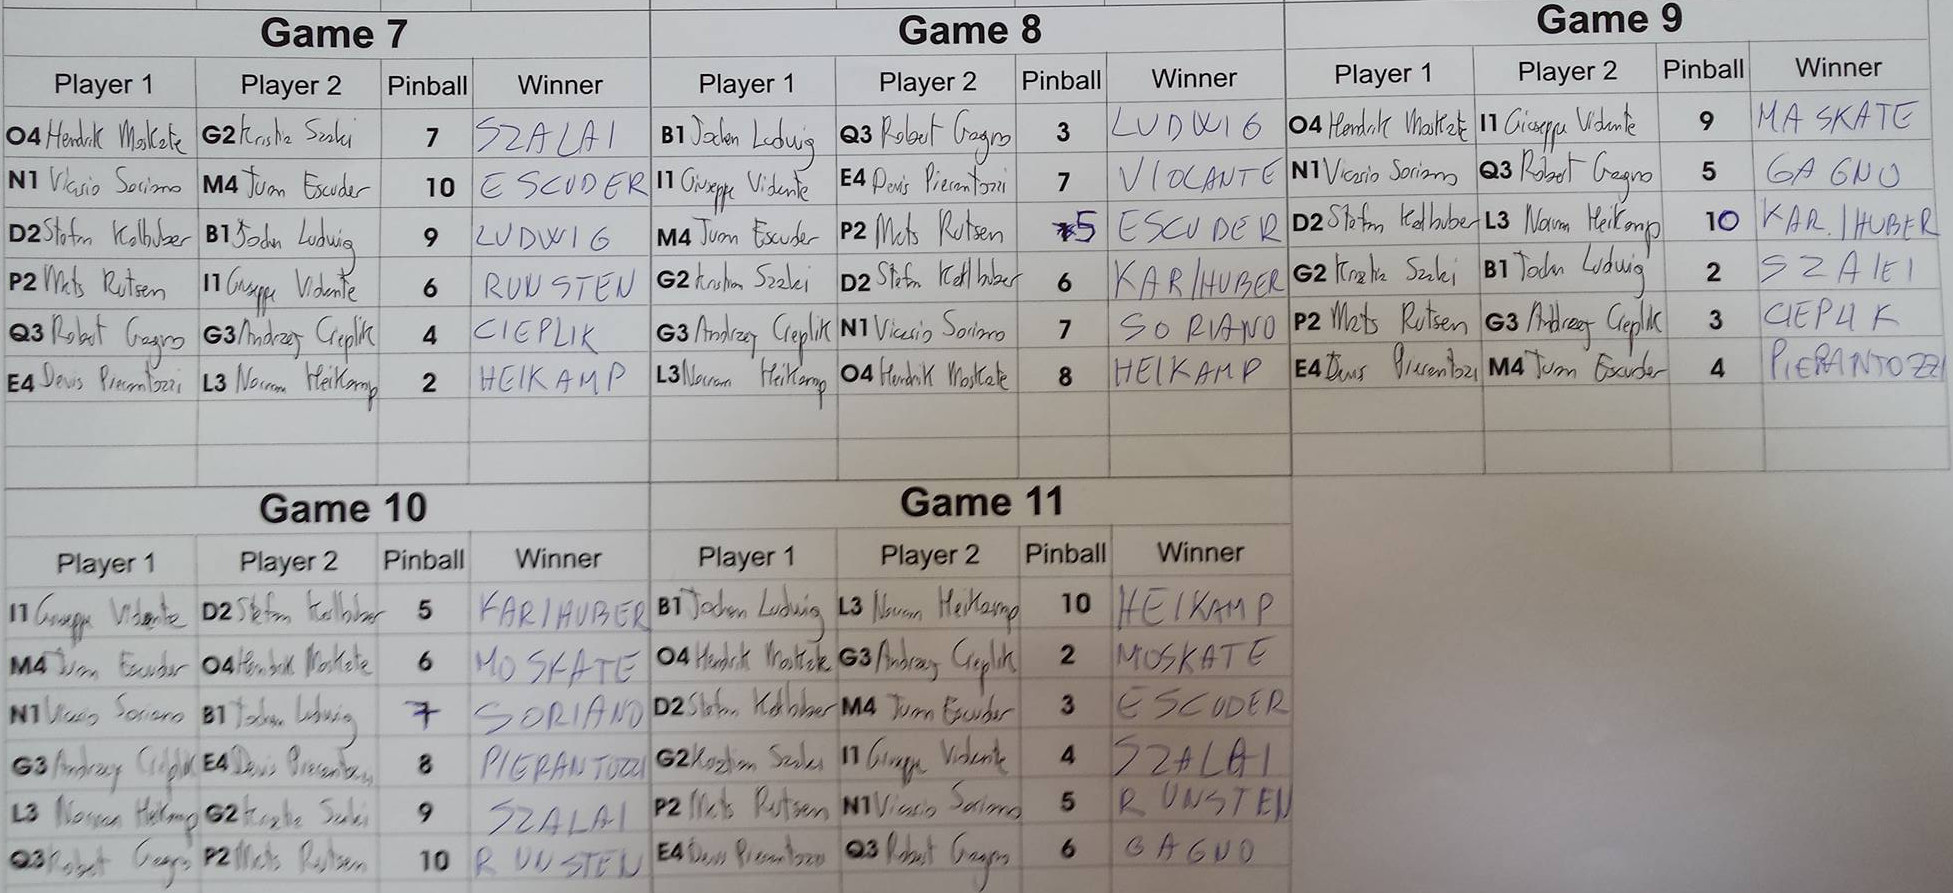 Game 7
Player 1 Player 2 Pinball Winner
O4 Hendrik Moskate G2 Kristia Szaki 7 SZALAI
N1 Vicasio Soriano M4 Juan Escuder 10 ESCUDER
D2 Stefan Kalhuber B1 Jochen Ludwig 9 LUDWIG
P2 Mats Rutsen I1 Giuseppe Vidente 6 RUNSTEN
Q3 Robert Gagno G3 Andrzej Cieplik 4 CIEPLIK
E4 Devis Pierantozzi L3 Norman Heikamp 2 HEIKAMP
Game 8
Player 1 Player 2 Pinball Winner
B1 Jochen Ludwig Q3 Robert Gagno 3 LUDWIG
I1 Giuseppe Vidente E4 Devis Pierantozzi 7 VIOLANTE
M4 Juan Escuder P2 Mats Rutsen 5 ESCUDER
G2 Szaki D2 Stefan Kalhuber 6 KARLHUBER
G3 Andrzej Cieplik N1 Vicasio Soriano 7 SORIANO
L3 Norman Heikamp O4 Hendrik Moskate 8 HEIKAMP
Game 9
Player 1 Player 2 Pinball Winner
O4 Hendrik Moskate I1 Giuseppe Vidente 9 MASKATE
N1 Vicasio Soriano Q3 Robert Gagno 5 GAGNO
D2 Stefan Kalhuber L3 Norman Heikamp 10 KAR.LHUBER
G2 Szaki B1 Jochen Ludwig 2 SZALEI
P2 Mats Rutsen G3 Andrzej Cieplik 3 CIEPLIK
E4 Devis Pierantozzi M4 Juan Escuder 4 PIERANTOZZI
Game 10
Player 1 Player 2 Pinball Winner
I1 Giuseppe Vidente D2 Stefan Kalhuber 5 KARLHUBER
M4 Juan Escuder O4 Hendrik Moskate 6 MOSKATE
N1 Vicasio Soriano B1 Jochen Ludwig 7 SORIANO
G3 Andrzej Cieplik E4 Devis Pierantozzi 8 PIERANTOZZI
L3 Norman Heikamp G2 Szaki 9 SZALAI
Q3 Robert Gagno P2 Mats Rutsen 10 RUNSTEN
Game 11
Player 1 Player 2 Pinball Winner
B1 Jochen Ludwig L3 Norman Heikamp 10 HEIKAMP
O4 Hendrik Moskate G3 Andrzej Cieplik 2 MOSKATE
D2 Stefan Kalhuber M4 Juan Escuder 3 ESCUDER
G2 Szaki I1 Giuseppe Vidente 4 SZALAI
P2 Mats Rutsen N1 Vicasio Soriano 5 RUNSTEN
E4 Devis Pierantozzi Q3 Robert Gagno 6 GAGNO